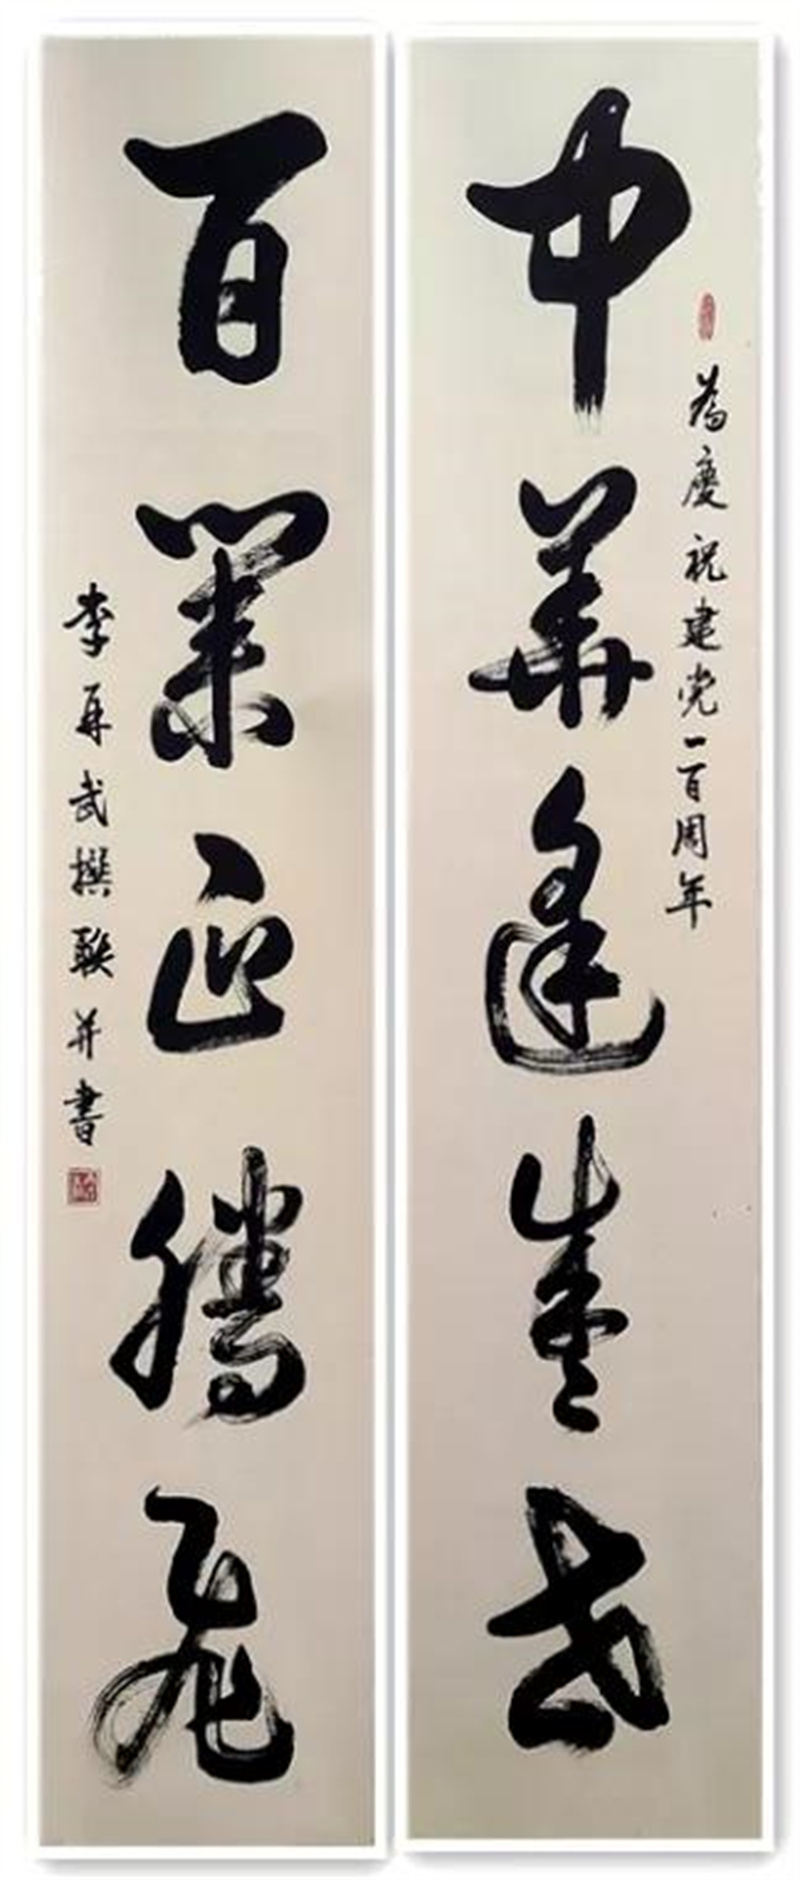 为慶祝建党一百周年
中華逢盛世
百業正騰飛
李再武撰联并書